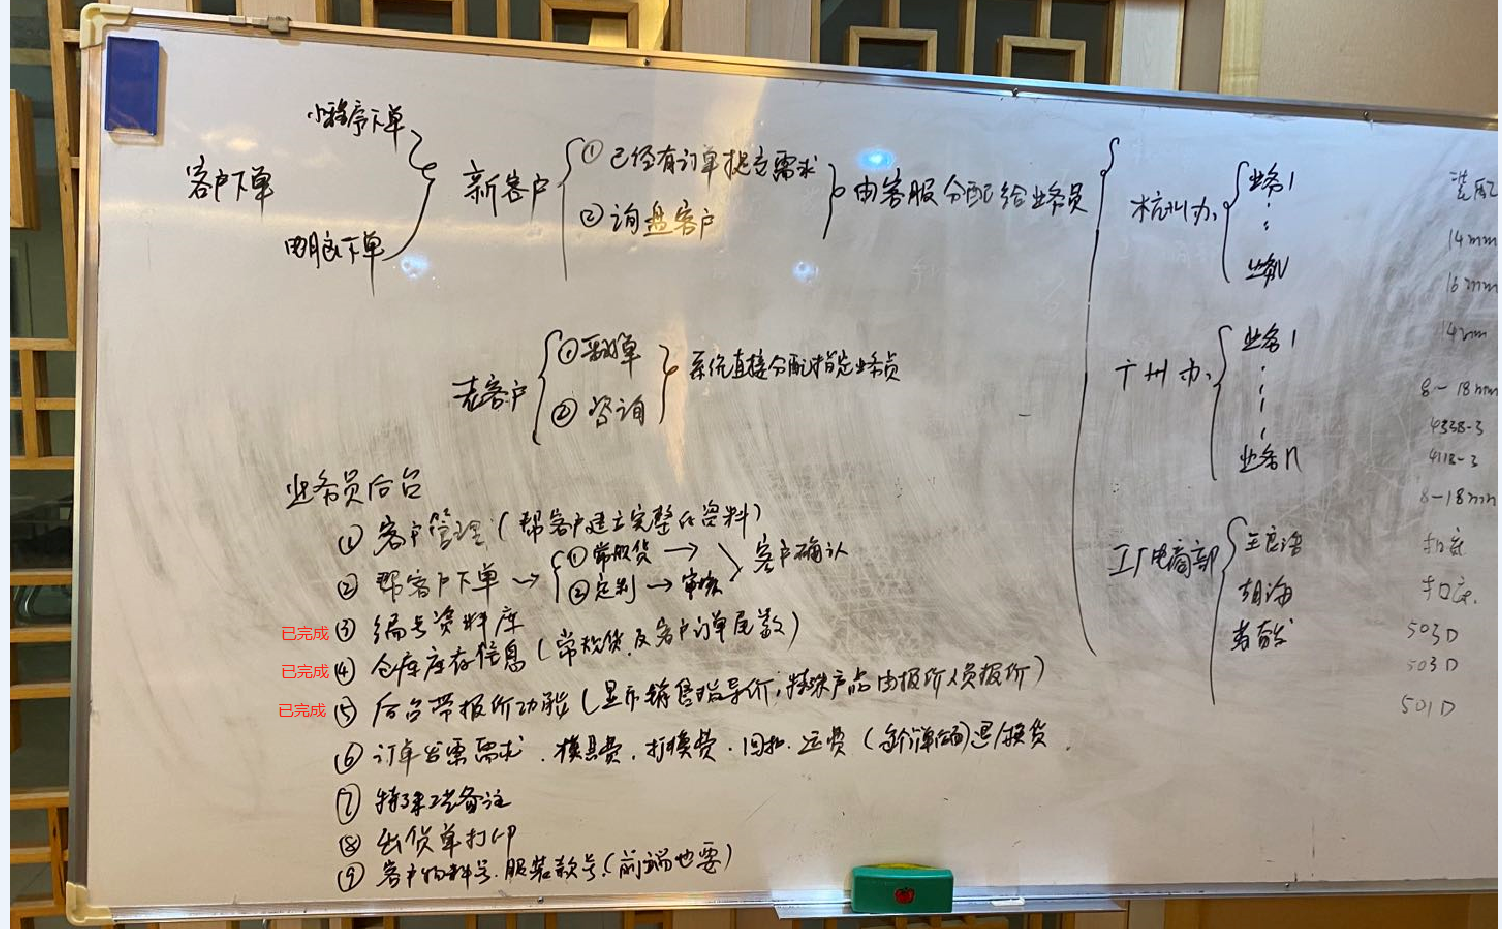 小程序下单
客户下单
电脑下单
新客户
① 已经有订单提交需求
② 询盘客户
由客服分配给业务员
杭州办
业务1
业务N
老客户
① 采购单
② 咨询
系统直接分配指定业务员
广州办
业务1
业务n
工厂电商部
胡海
业务员后台
① 客户管理（帮客户建立完整的资料）
② 帮客户下单 → ① 常规货 → 客户确认
② 定制 → 审核
已完成 ③ 编号资料库
已完成 ④ 仓库库存信息（常规货及客户订单尾数）
已完成 ⑤ 后台带报价功能（显示销售指导价，特殊产品由报价人员报价）
⑥ 订单发票需求、模具费、打模费、回扣、运费 退/换货
⑦ 特殊工艺备注
⑧ 出货单打印
⑨ 客户物料号、服装款号（前端也要）
装配
14mm
16mm
14mm
8-18mm
433B-3
411B-3
8-18mm
扣底
扣底
503D
503D
501D